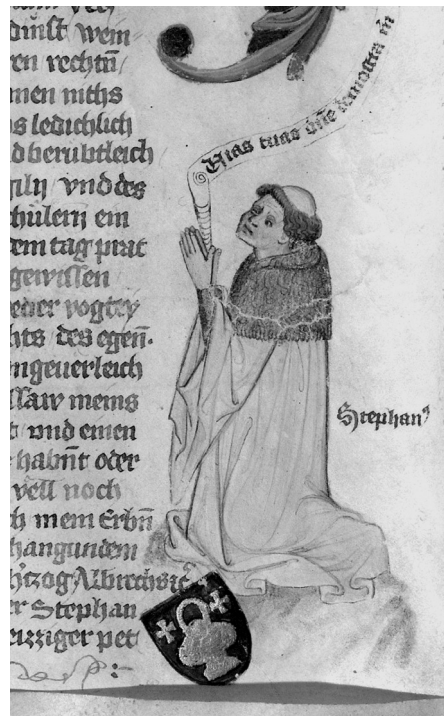 dinst wem
ren rechtn̄
men nichs
s ledichlich
d berubtleich
gilij vnd des
chulern ein
em tag prat
gewissen
eder vogtey
hts des egen̄.
ngeuerleich
ssaw meins
t vnd einen
habn̄t oder
vell noch
h mein Erbn̄
hangundem
htzog Albrechs
er Stephan
eizziger pet
Vias tuas dn̄e demostra m̄
Stephanꝰ